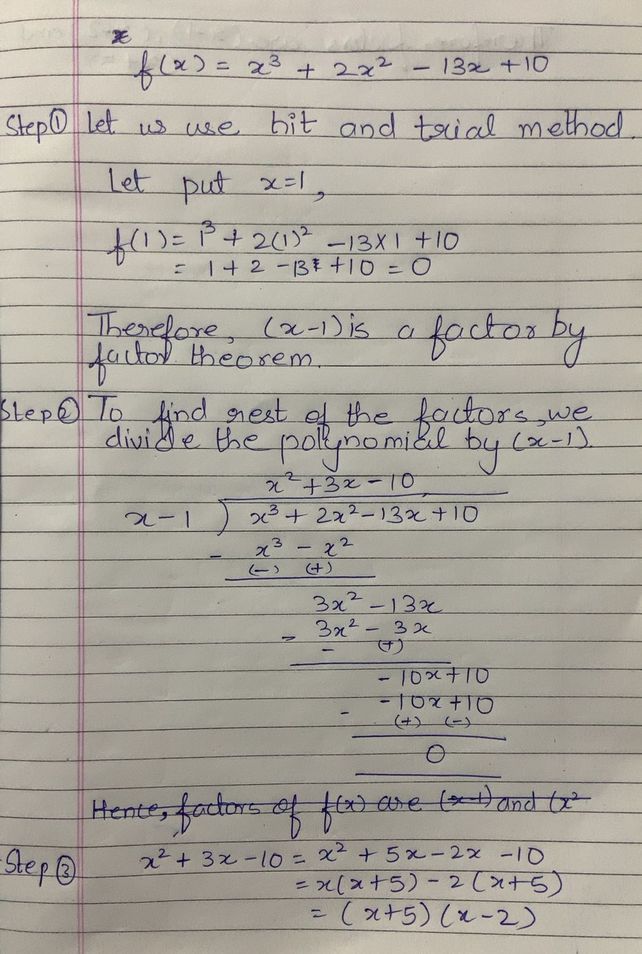 x
f(x) = x³ + 2x² - 13x + 10
Step ① Let us use hit and trial method.
Let put x=1,
f(1) = 1³ + 2(1)² - 13×1 + 10
= 1 + 2 - 13 + 10 = 0
Therefore, (x-1) is a factor by
factor theorem.
Step ② To find rest of the factors, we
divide the polynomial by (x-1).
x² + 3x - 10
x - 1 ) x³ + 2x² - 13x + 10
- x³ - x²
(-) (+)
3x² - 13x
- 3x² - 3x
- (+)
- 10x + 10
- - 10x + 10
(+) (-)
0
Hence, factors of f(x) are (x-1) and (x²
Step ③ x² + 3x - 10 = x² + 5x - 2x - 10
= x(x+5) - 2(x+5)
= (x+5)(x-2)